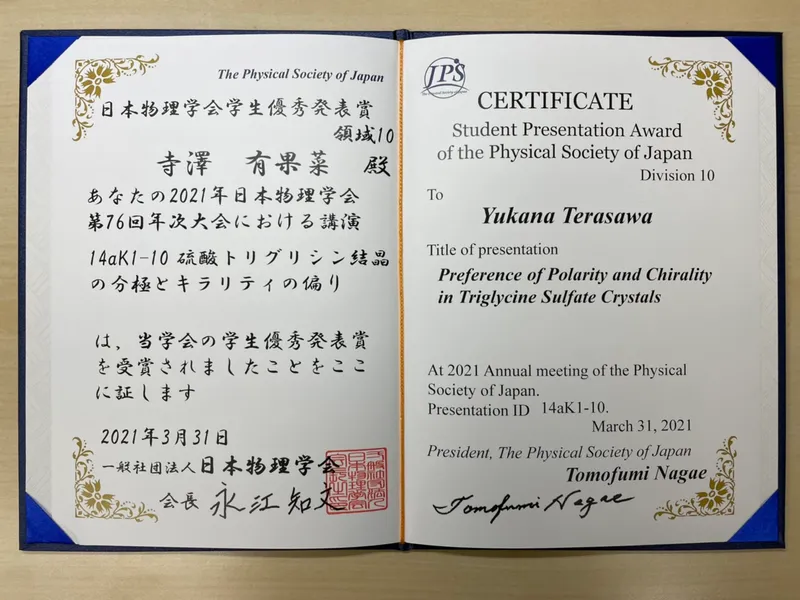 The Physical Society of Japan
日本物理学会学生優秀発表賞
領域10
寺澤 有果菜 殿
あなたの2021年日本物理学会
第76回年次大会における講演
14aK1-10 硫酸トリグリシン結晶
の分極とキラリティの偏り
は、当学会の学生優秀発表賞
を受賞されましたことをここ
に証します
2021年3月31日
一般社団法人日本物理学会
会長 永江知文
JPS
CERTIFICATE
Student Presentation Award
of the Physical Society of Japan
Division 10
To
Yukana Terasawa
Title of presentation
Preference of Polarity and Chirality
in Triglycine Sulfate Crystals
At 2021 Annual meeting of the Physical
Society of Japan.
Presentation ID 14aK1-10.
March 31, 2021
President, The Physical Society of Japan
Tomofumi Nagae
Tomofumi Nagae